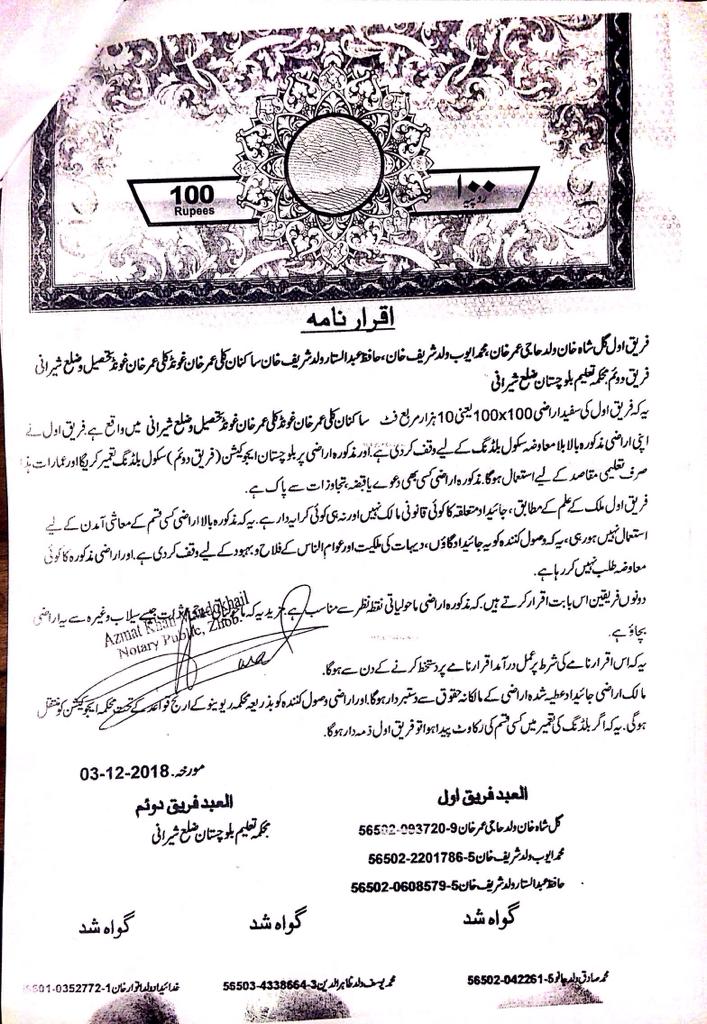 100
Rupees
۱۰۰
روپیہ
اقرار نامہ
فریق اول گل شاہ خان ولد حاجی عمر خان، محمد ایوب ولد شریف خان، حافظ عبدالستار ولد شریف خان ساکنان کلی عمر خان غونڈ کلی عمر خان غونڈ تحصیل و ضلع شیرانی
فریق دوئم: محکمہ تعلیم بلوچستان ضلع شیرانی
یہ کہ فریق اول کی سفید اراضی 100x100 یعنی 10 ہزار مربع فٹ ساکنان کلی عمر خان غونڈ کلی عمر خان غونڈ تحصیل و ضلع شیرانی میں واقع ہے فریق اول نے
اپنی اراضی مذکورہ بالا بلا معاوضہ سکول بلڈنگ کے لیے وقف کر دی ہے۔ اور مذکورہ اراضی پر بلوچستان ایجوکیشن (فریق دوئم) سکول بلڈنگ تعمیر کریگا اور عمارات ہذا
صرف تعلیمی مقاصد کے لیے استعمال ہوگا۔ مذکورہ اراضی کسی بھی دعوے یا قبضہ، تجاوزات سے پاک ہے۔
فریق اول ملک کے علم کے مطابق، جائیداد متعلقہ کا کوئی قانونی مالک نہیں اور نہ ہی کوئی کرایہ دار ہے۔ یہ کہ مذکورہ بالا اراضی کسی قسم کے معاشی آمدن کے لیے
استعمال نہیں ہو رہی، یہ کہ وصول کنندہ کو یہ جائیداد گاؤں، دیہات کی ملکیت اور عوام الناس کے فلاح و بہبود کے لیے وقف کر دی ہے۔ اور اراضی مذکورہ کا کوئی
معاوضہ طلب نہیں کر رہا ہے۔
دونوں فریقین اس بابت اقرار کرتے ہیں، کہ مذکورہ اراضی ماحولیاتی نقطہ نظر سے مناسب ہے مزید یہ کہ جیسے سیلاب وغیرہ سے یہ اراضی
بچاؤ ہے۔
Azmat Khan Mandokhail
Notary Public, Zhob.
یہ کہ اس اقرار نامے کی شرط پر عمل درآمد اقرار نامے پر دستخط کرنے کے دن سے ہوگا۔
مالک اراضی جائیداد عطیہ شدہ اراضی کے مالکانہ حقوق سے دستبردار ہوگا۔ اور اراضی وصول کنندہ کو بذریعہ محکمہ ریوینو کے ارائج قواعد کے تحت محکمہ ایجوکیشن کو منتقل
ہوگی۔ یہ کہ اگر بلڈنگ کی تعمیر میں کسی قسم کی رکاوٹ پیدا ہوا تو فریق اول ذمہ دار ہوگا۔
مورخہ۔ 03-12-2018
العبد فریق اول
گل شاہ خان ولد حاجی عمر خان 56502-093720-9
محمد ایوب ولد شریف خان 56502-2201786-5
حافظ عبدالستار ولد شریف خان 56502-0608579-5
العبد فریق دوئم
محکمہ تعلیم بلوچستان ضلع شیرانی
گواہ شد
گواہ شد
گواہ شد
محمد صادق ولد جانو 56502-042261-5
محمد یوسف ولد ظاہر الدین 56503-4338664-3
خدائیداد ولد انوار خان 0352772-1